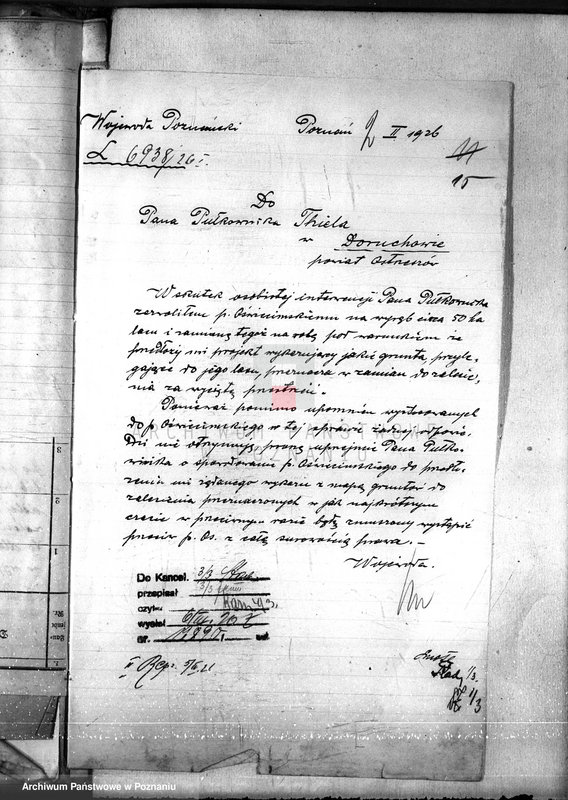 Wojewoda Poznański Poznań 2 II 1926
L 6938/26 I.
15
Do
Pana Pułkownika Thiela
w Doruchowie
powiat Ostrzeszów
Wskutek osobistej interwencji Pana Pułkownika
zezwoliłem p. Ościcimskiemu na wyrąb circa 50 ha
lasu i zamianę tegoż na rolę pod warunkiem że
przedłoży mi projekt wykazujący jakie grunta, przyle-
gające do jego lasu, przeznacza w zamian do zalesie-
nia za wyciętą przestrzeń.
Ponieważ pomimo upomnień wystosowanych
do p. Ościcimskiego w tej sprawie żadnej odpowie-
dzi nie otrzymuję, proszę uprzejmie Pana Pułko-
wnika o spowodowanie p. Ościcimskiego do przedło-
żenia mi żądanego wykazu z mapą gruntów do
zalesienia przeznaczonych w jak najkrótszym
czasie w przeciwnym razie będę zmuszony wystąpić
przeciw p. Os. z całą surowością prawa. -
Wojewoda.
Do Kancel. 3/3
przepisał 3/3
czyt.
wysłał
nr. zał.
II Rep.
1/3.
1/3
ARCHIWUM PAŃSTWOWE
W POZNANIU
Archiwum Państwowe w Poznaniu